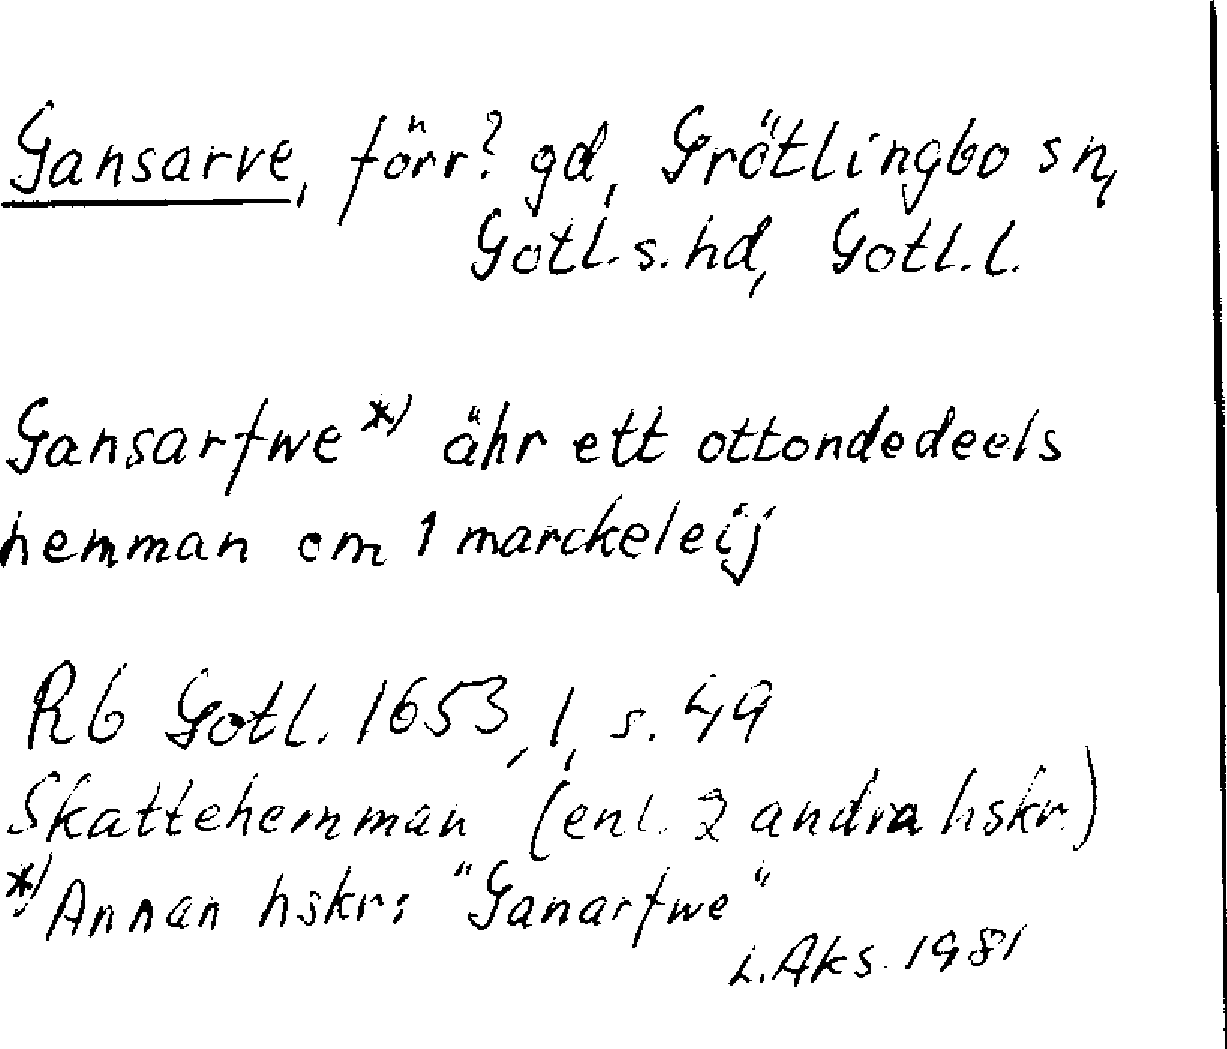 Gansarve, förr? gd, Grötlingbo sn,
Gotl. s. hd, Gotl. l.
Gansarfwe *) ähr ett ottondedeels
hemman om 1 marckeleij
Rb Gotl. 1653, 1, s. 49
Skattehemman (enl. 2 andra hskr.)
*) Annan hskr: "Ganarfwe"
L. Aks. 1981